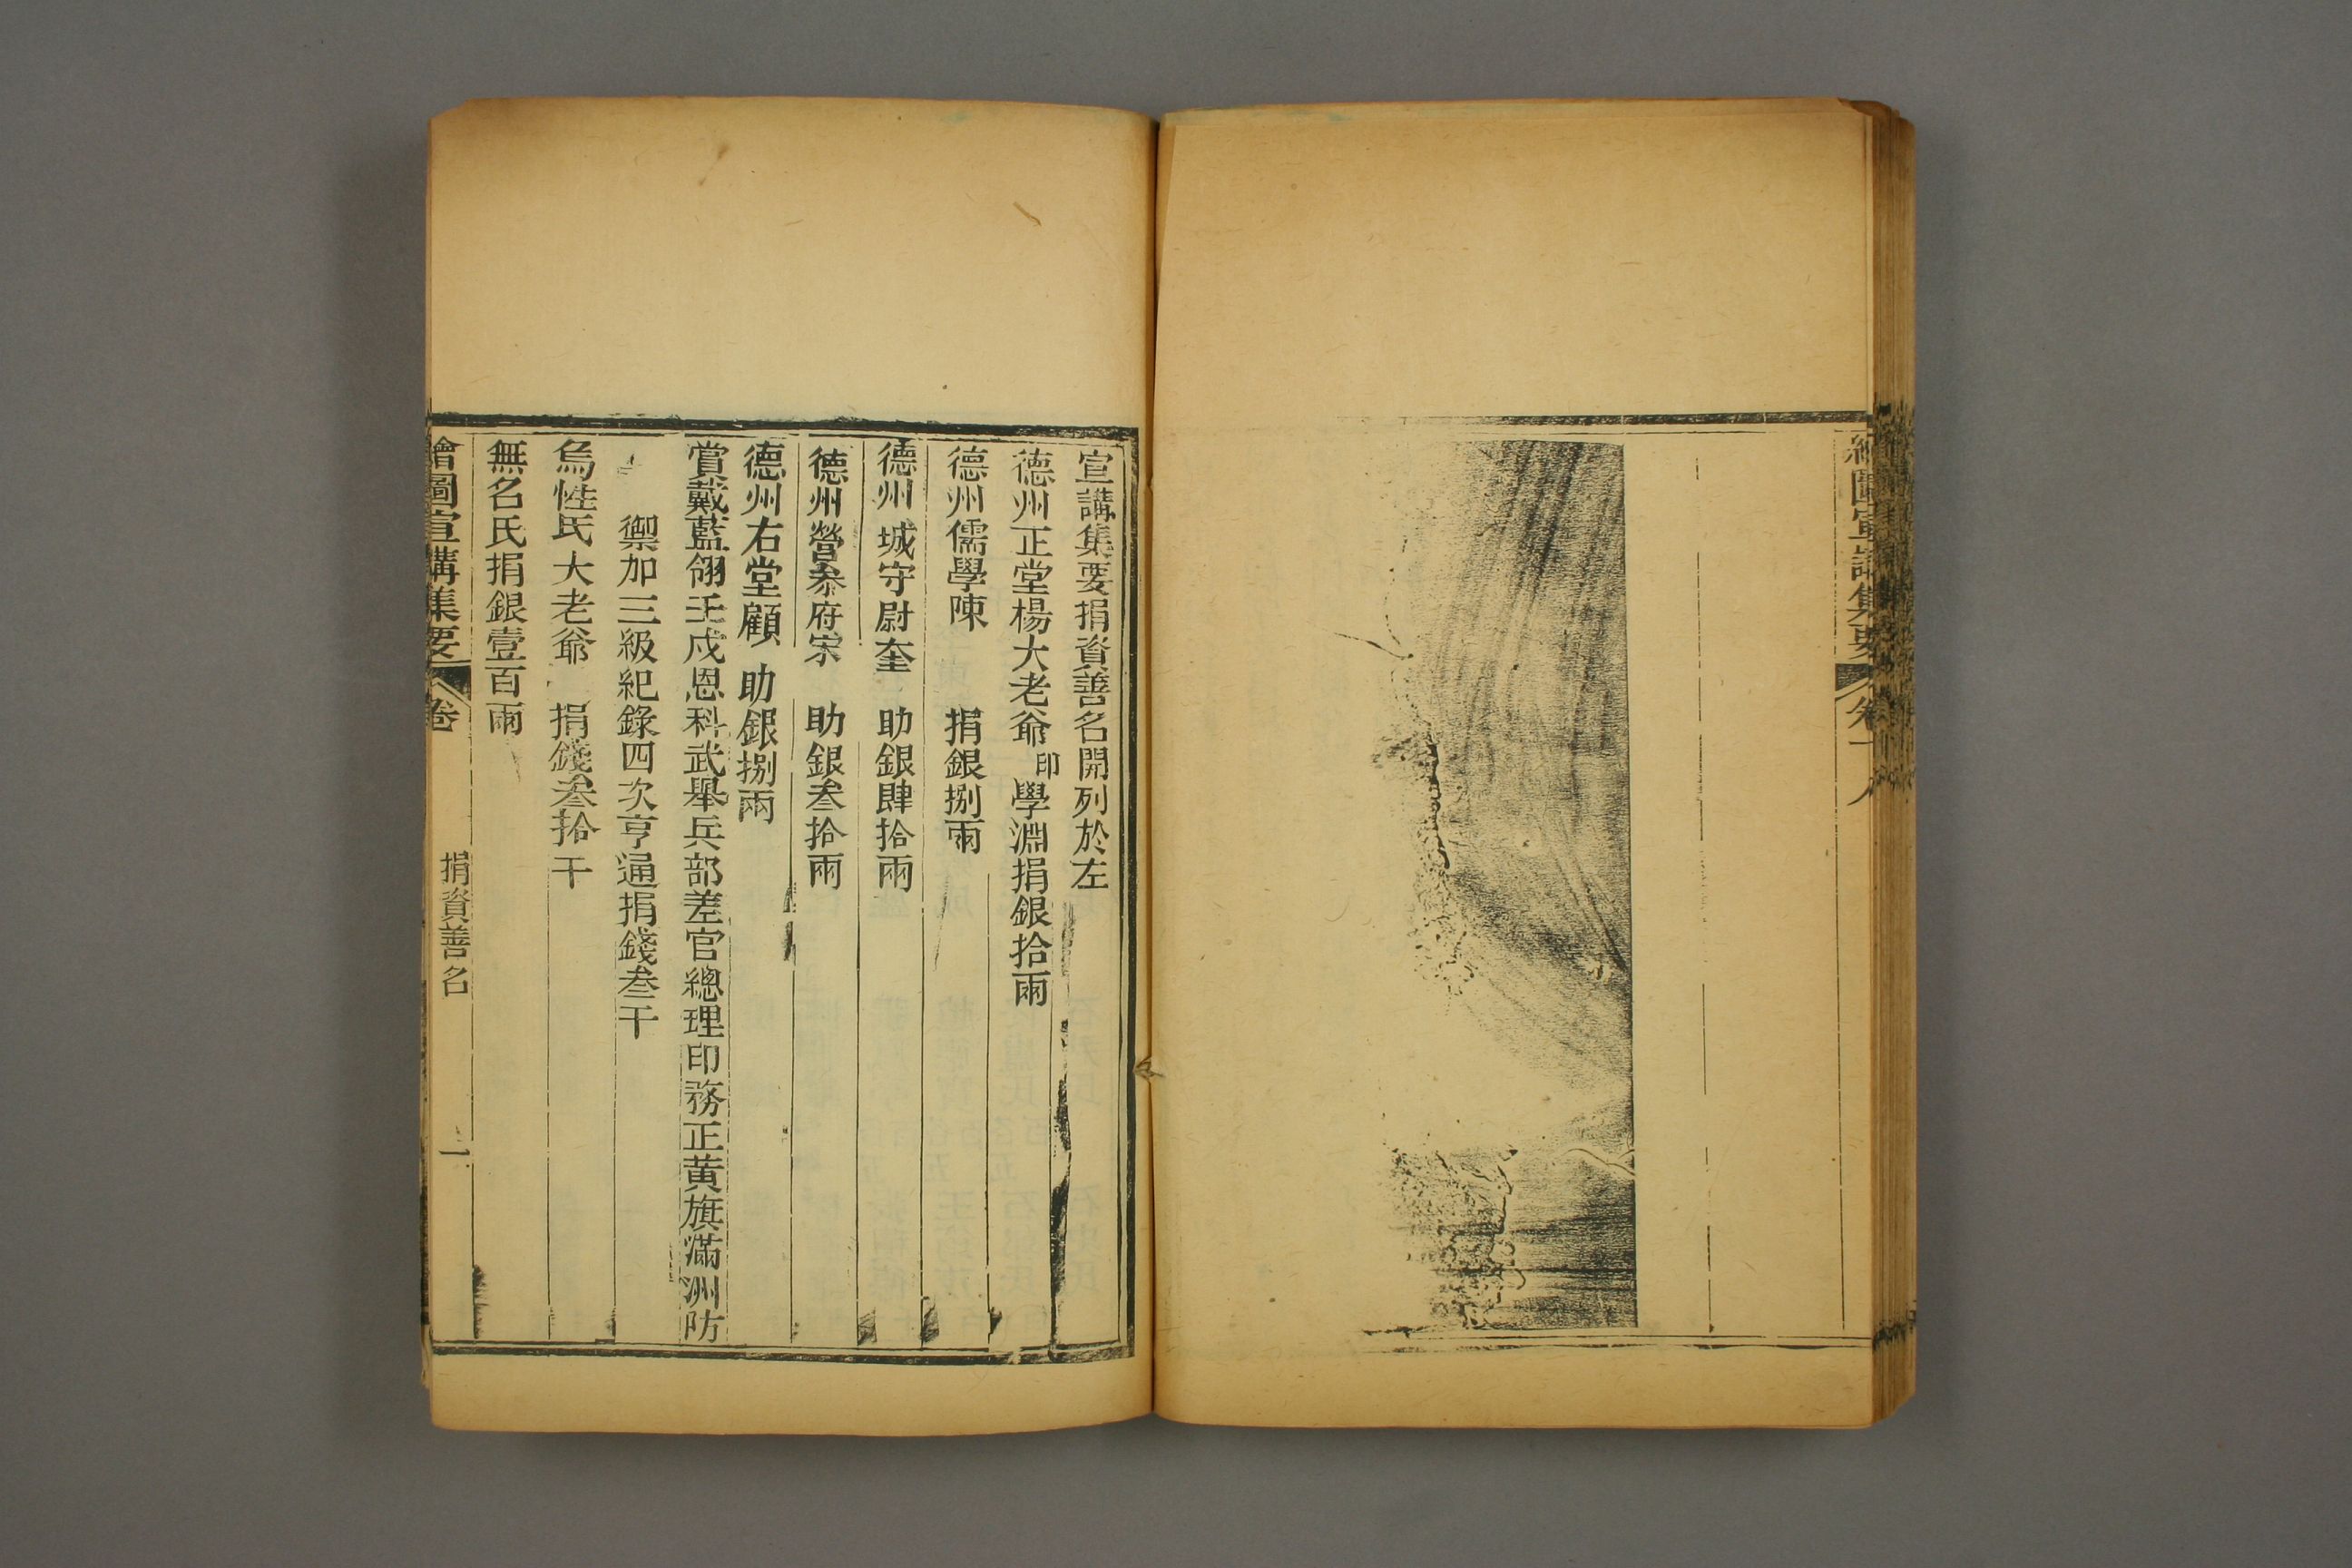 宣講集要捐資善名開列於左
德州正堂楊大老爺印學淵捐銀拾兩
德州儒學陳 捐銀捌兩
德州城守尉奎 助銀肆拾兩
德州營叅府宗 助銀叁拾兩
德州右堂顧 助銀捌兩
賞戴藍翎壬戌恩科武舉兵部差官總理印務正黃旗滿洲防
禦加三級紀錄四次亨通捐錢叁千
烏性氏大老爺 捐錢叁拾千
無名氏捐銀壹百兩
繪圖宣講集要 卷 捐資善名 一
繪圖宣講集要 卷十八